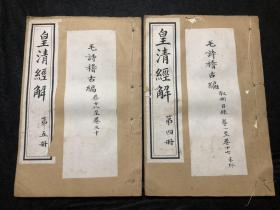 毛詩稽古編
卷一至卷十七
皇清經解
第四册
毛詩稽古編
卷十八至卷三十
皇清經解
第五册